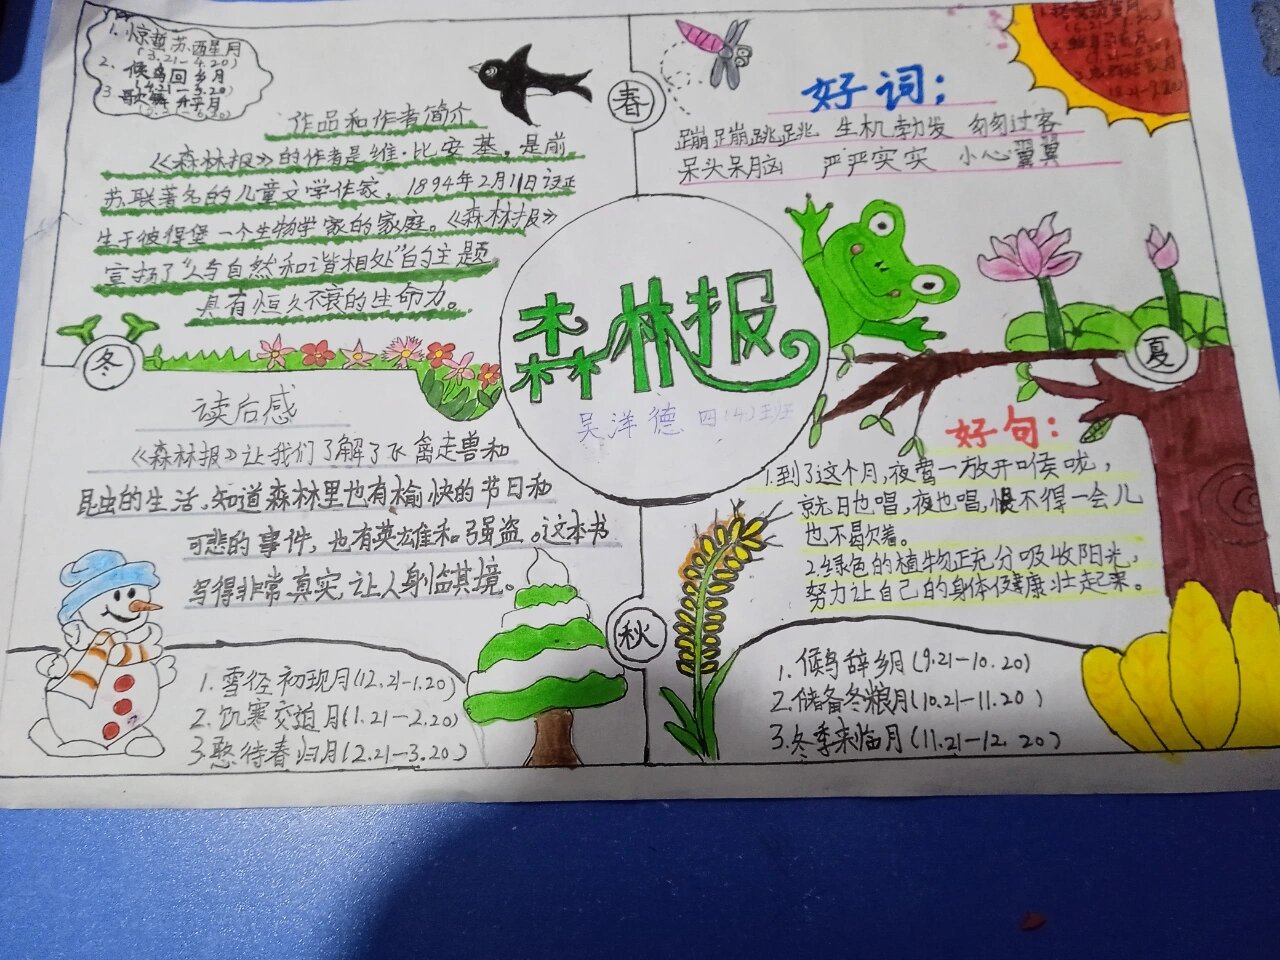 1. 惊蛰苏醒月
(3.21-4.20)
2. 候鸟回乡月
(4.21-5.20)
3. 歌舞升平月
作品和作者简介
《森林报》的作者是维·比安基。是前
苏联著名的儿童文学作家，1894年2月11日诞
生于彼得堡一个生物学家的家庭。《森林报》
宣扬了“人与自然和谐相处”的主题
具有恒久不衰的生命力。
春
好词：
蹦蹦跳跳 生机勃发 匆匆过客
呆头呆脑 严严实实 小心翼翼
夏
森林报
吴洋德 四(4)班
冬
读后感
《森林报》让我们了解了飞禽走兽和
昆虫的生活，知道森林里也有愉快的节日和
可悲的事件，也有英雄和强盗。这本书
写得非常真实，让人身临其境。
好句：
1.到了这个月，夜莺一放开喉咙，
就日也唱，夜也唱，恨不得一会儿
也不曷欠着。
2.绿色的植物正充分吸收阳光，
努力让自己的身体健康壮起来。
秋
1. 雪径初现月(12.21-1.20)
2. 饥寒交迫月(1.21-2.20)
3. 憨待春归月(2.21-3.20)
1. 候鸟辞乡月(9.21-10.20)
2. 储备冬粮月(10.21-11.20)
3. 冬季来临月(11.21-12.20)